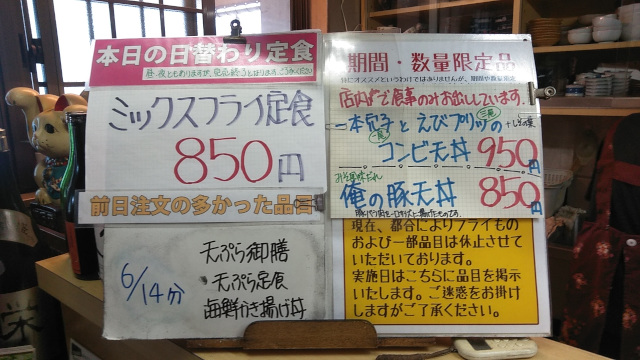 本日の日替わり定食
ミックスフライ定食
850円
前日注文の多かった品目
6/14分
天ぷら御膳
天ぷら定食
海鮮かき揚げ丼
期間・数量限定品
特にオススメというわけではありませんが、期間や数量限定
店内で食事のみお出ししています。
一本穴子とえびプリッの
コンビ天丼 950円
俺の豚天丼 850円
現在、都合によりフライもの
および一部品目は休止させて
いただいております。
実施日はこちらに品目を掲示
いたします。ご迷惑をお掛け
しますがご了承ください。
栄